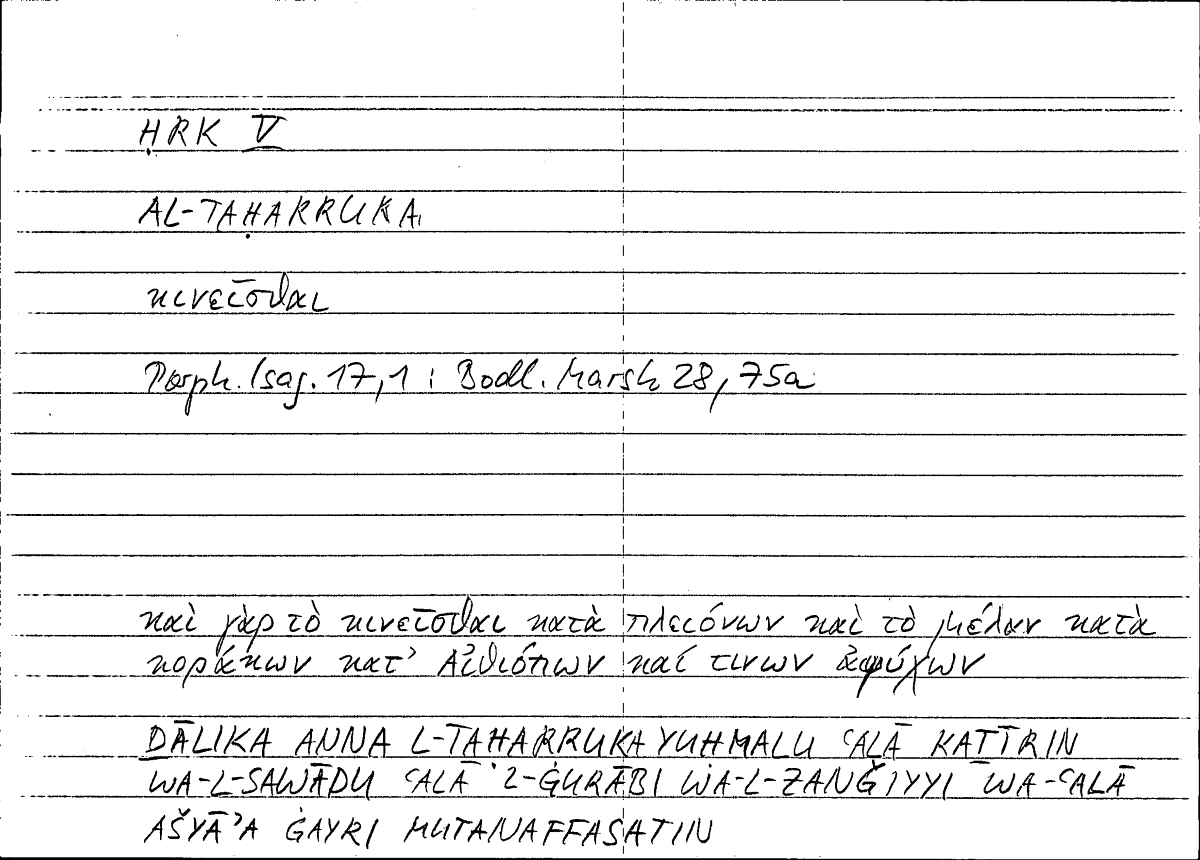 ḤRK V
AL-TAḤARRUKA
κινεῖσθαι
Porph. Isag. 17,1 : Bodl. Marsh 28, 75a
καὶ γὰρ τὸ κινεῖσθαι κατὰ πλειόνων καὶ τὸ μέλαν κατὰ
κοράκων κατ' Αἰθιόπων καί τινων ἀψύχων
ḎĀLIKA ANNA L-TAḤARRUKA YUḤMALU ʿALĀ KAṮĪRIN
WA-L-SAWĀDU ʿALĀ 'L-ĠURĀBI WA-L-ZANǦIYYI WA-ʿALĀ
AŠYĀʾA ĠAYRI MUTANAFFASATIIN